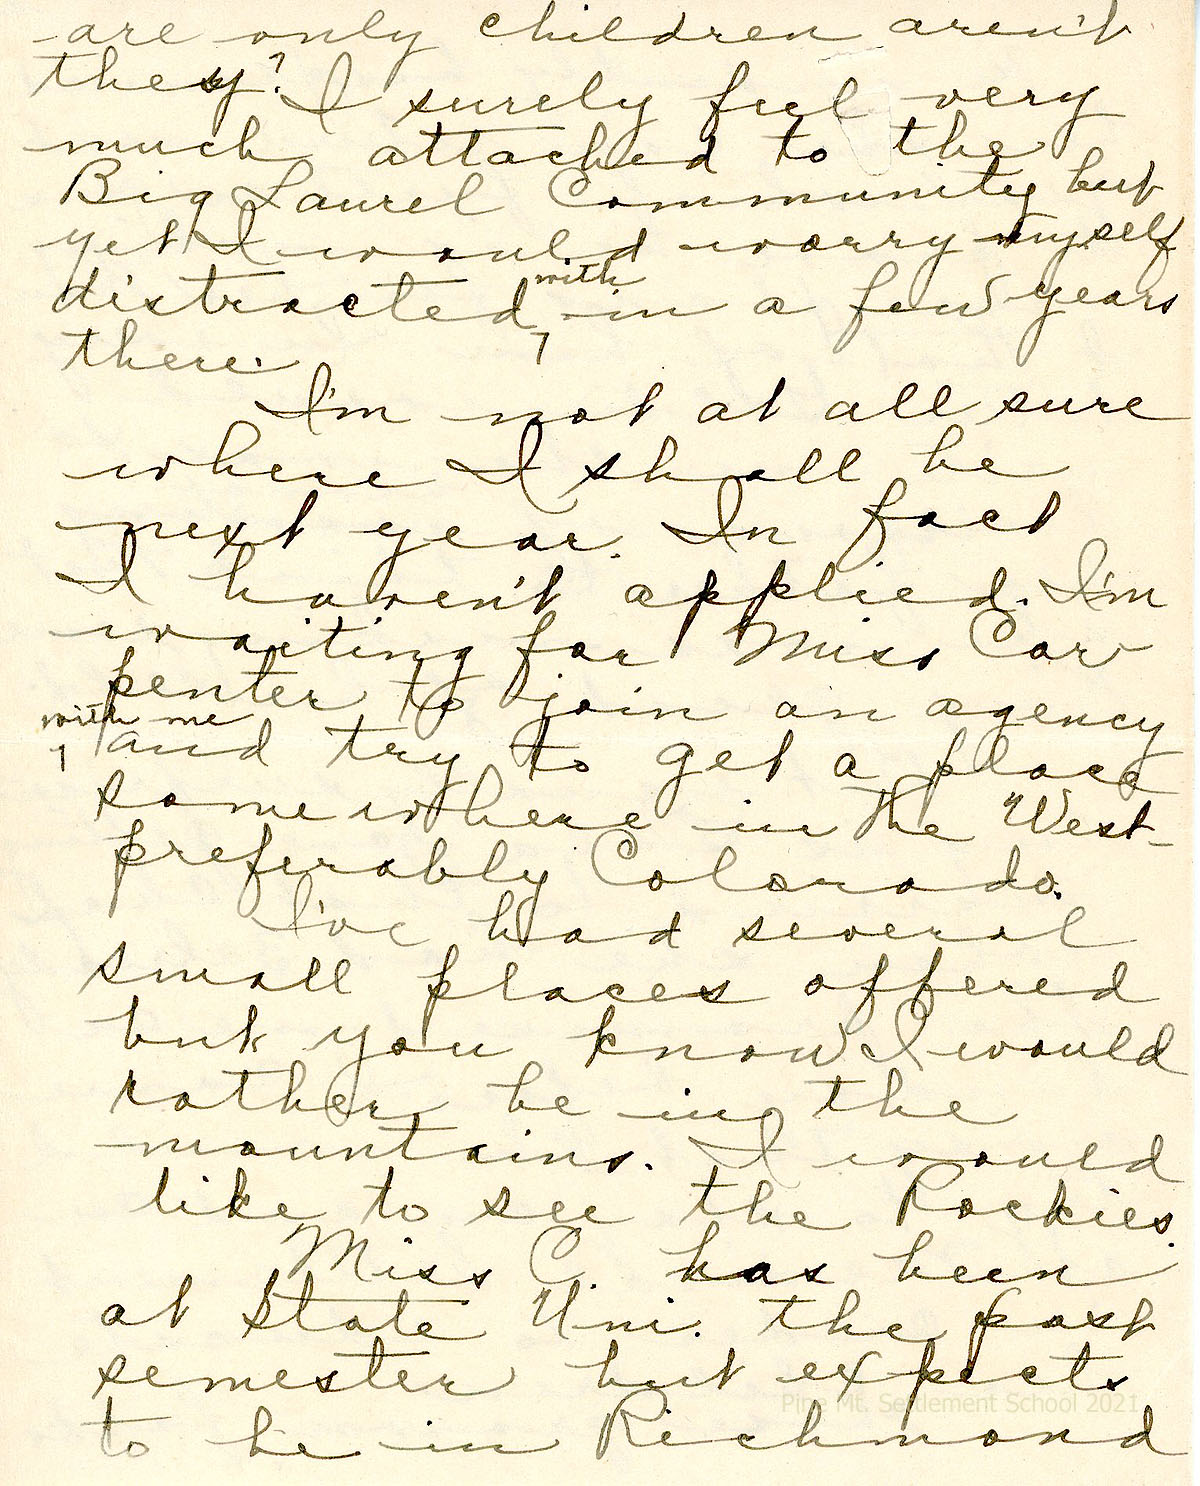 are only children aren't
they? I surely feel very
much attached to the
Big Laurel Community but
yet I would worry myself
distracted with in a few years
there.
I'm not at all sure
where I shall be
next year. In fact
I haven't applied. I'm
waiting for Miss Car-
penter to join an agency
with me and try to get a place
somewhere in the West-
preferably Colorado.
I've had several
small places offered
but you know I would
rather be in the
mountains. I would
like to see the Rockies.
Miss C. has been
at State Uni. the past
semester but expects
Pine Mt. Settlement School 2021
to be in Richmond